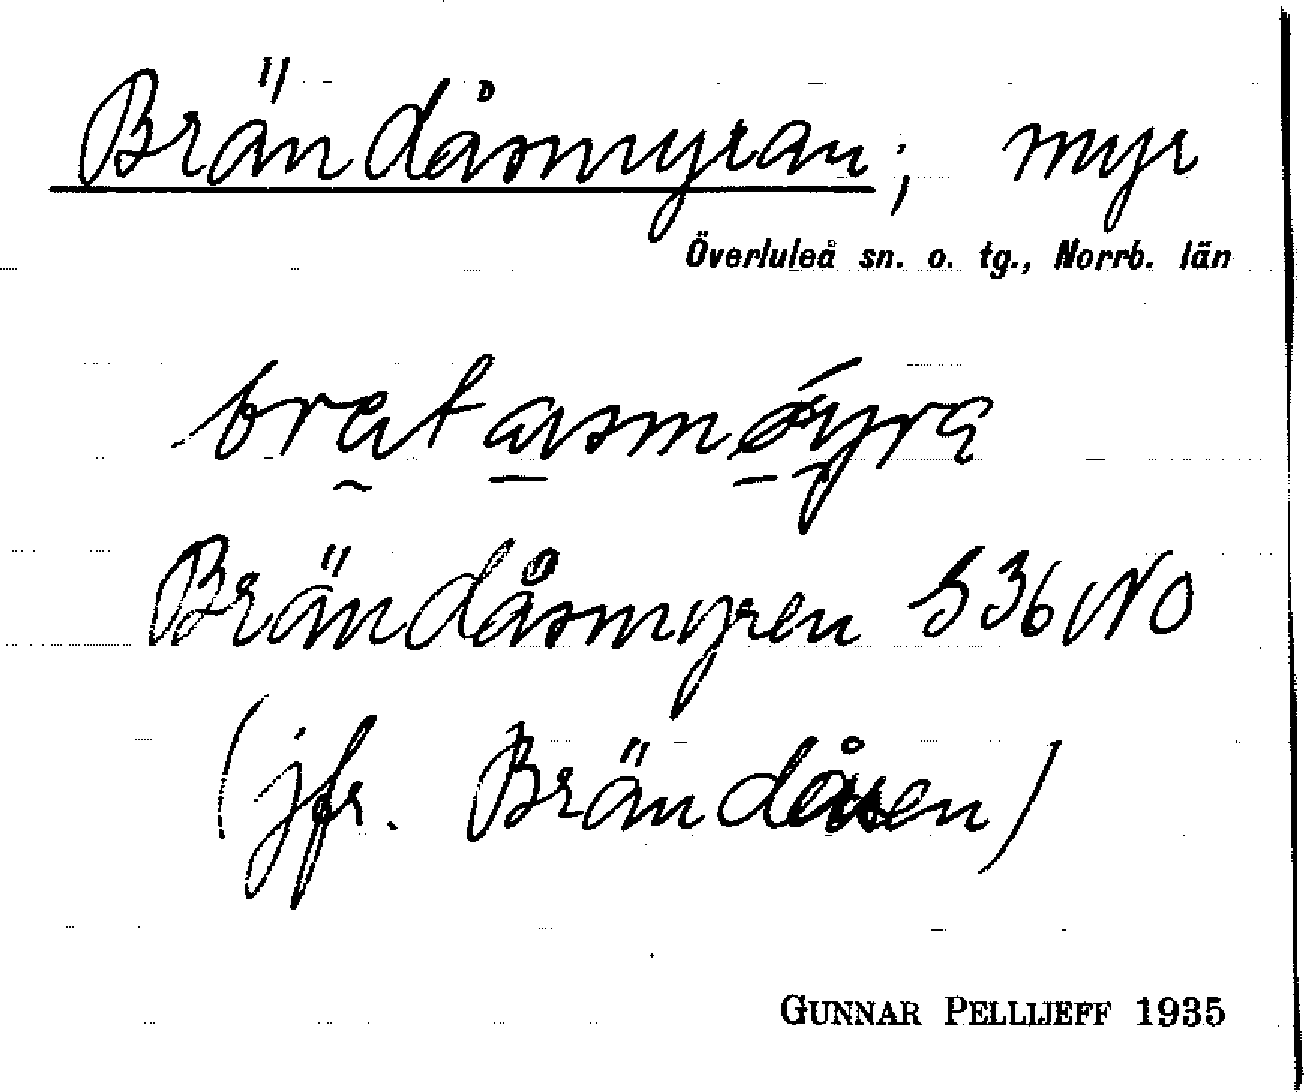 Brändåsmyran; myr
Överluleå sn. o. tg., Norrb. län
Brändåsmyren S 36 NO
(jfr. Brändåsen)
GUNNAR PELLIJEFF 1935